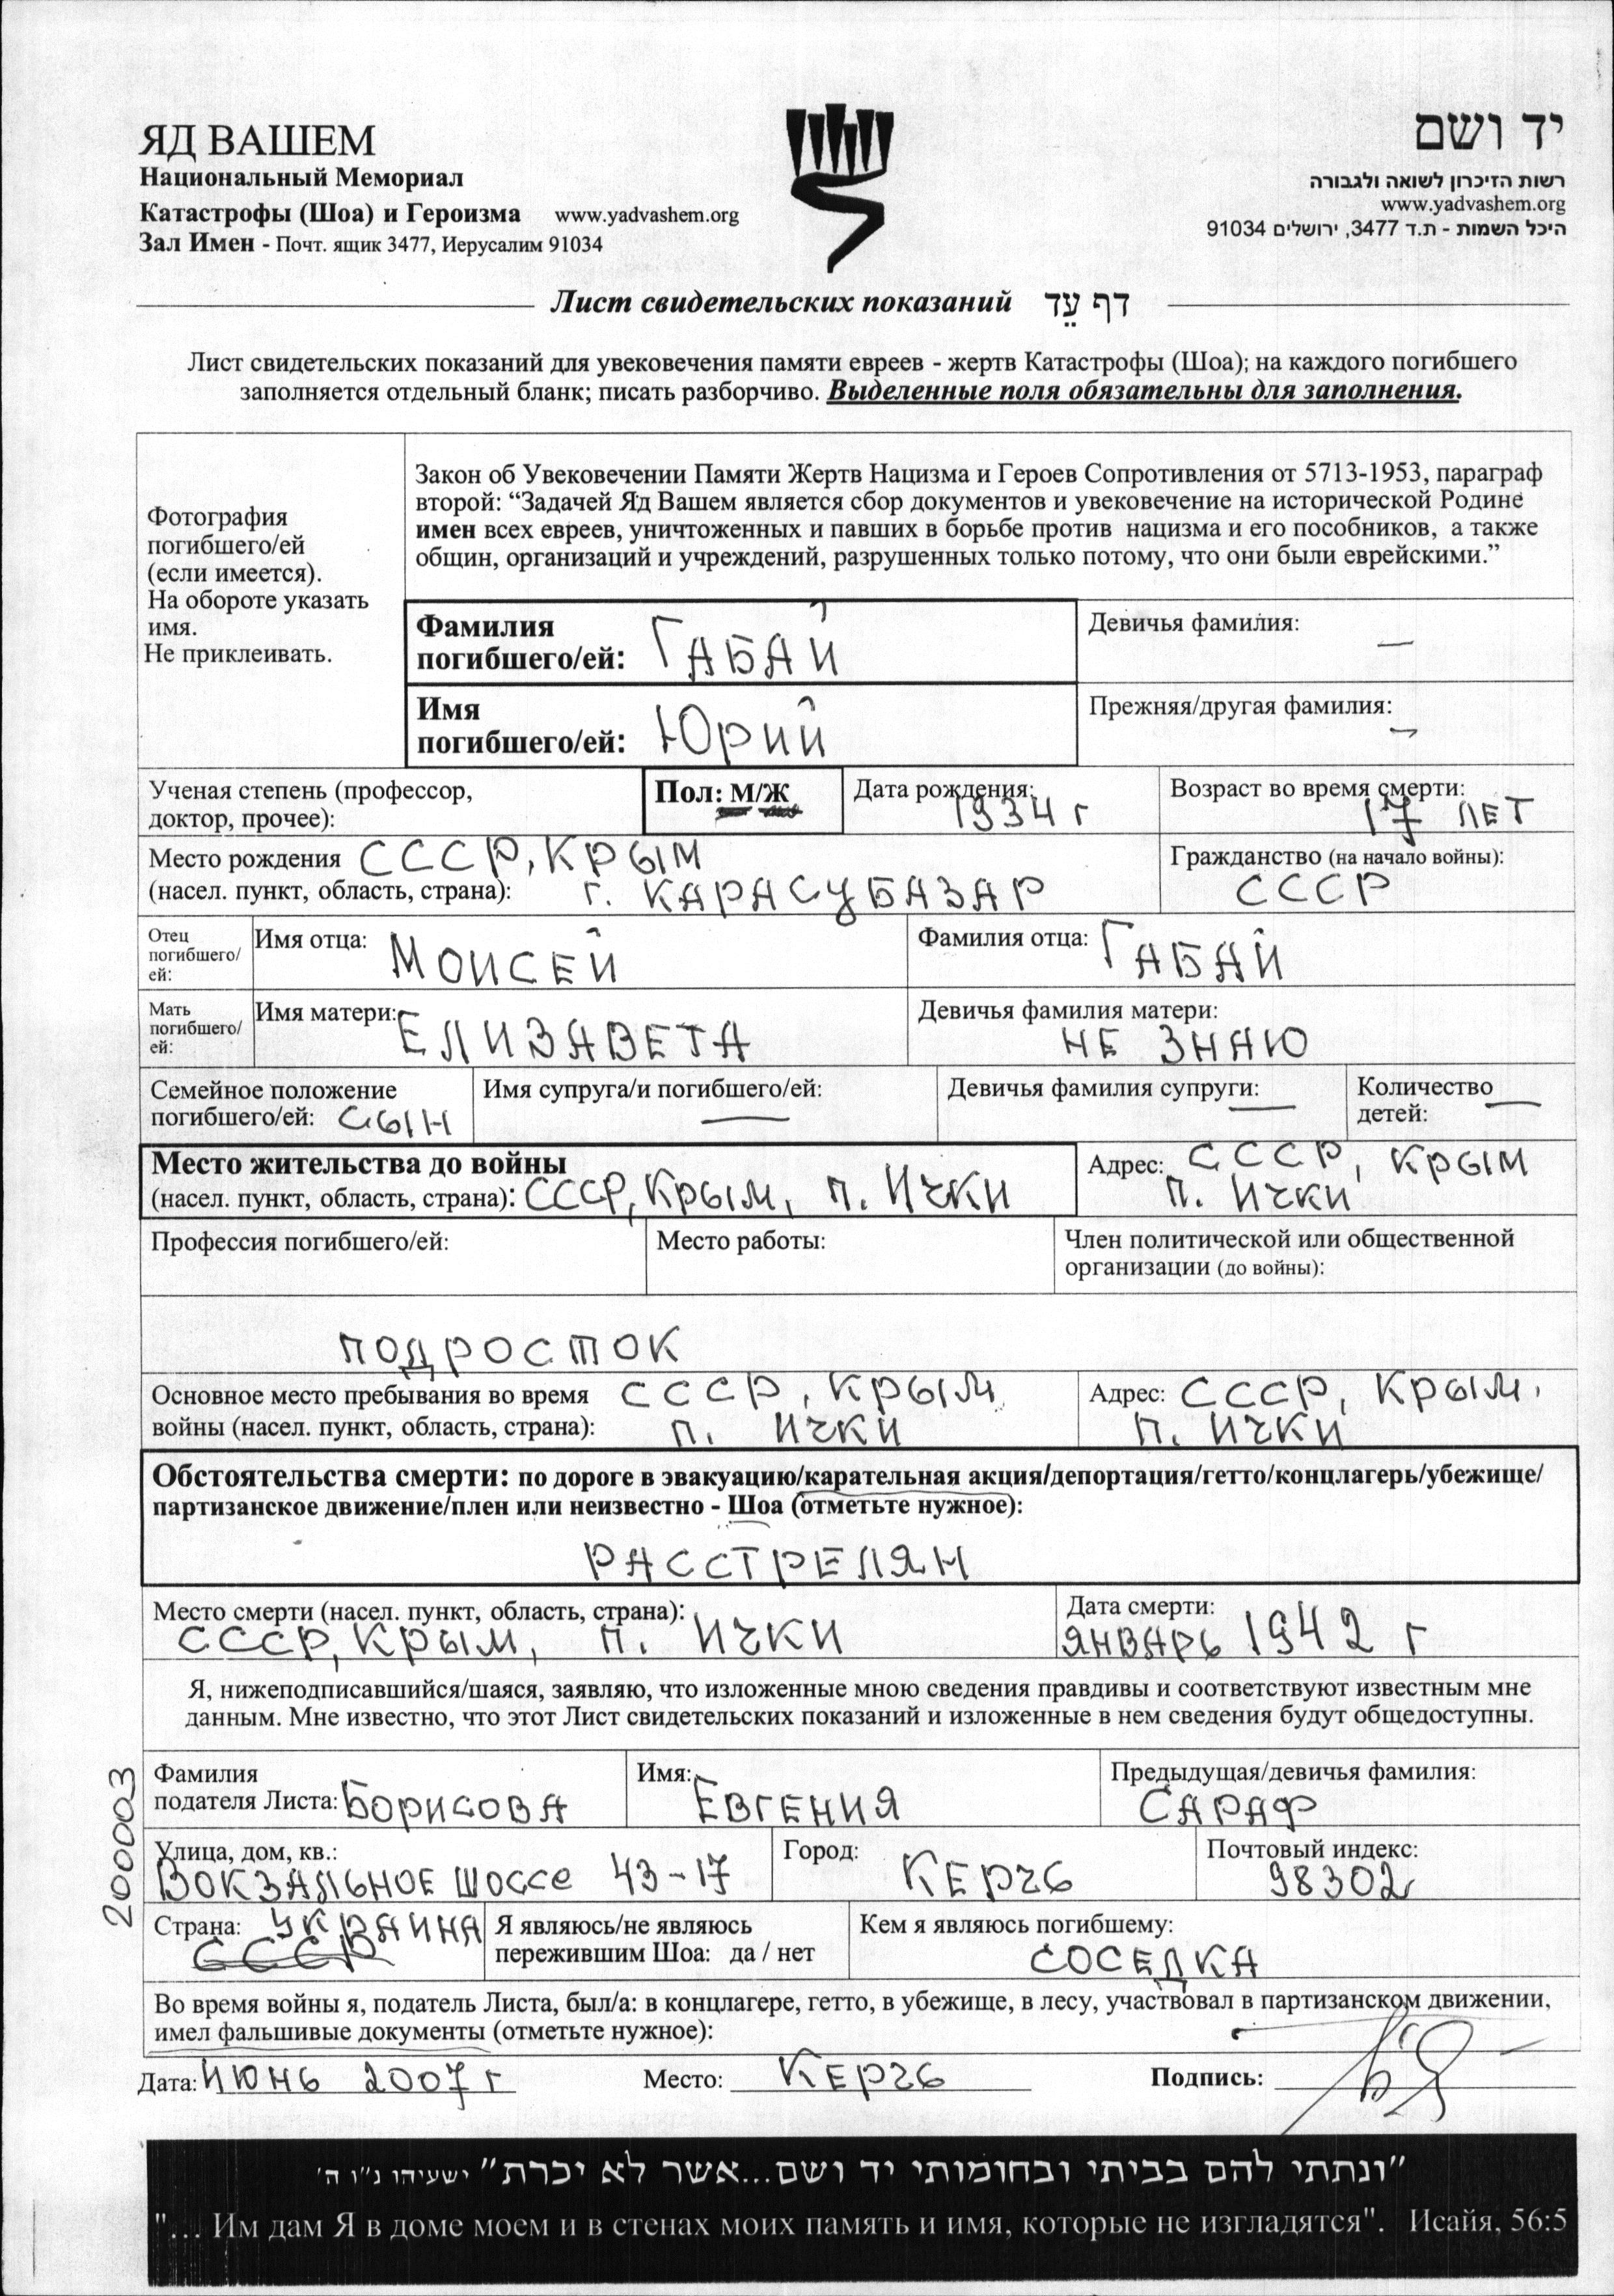 ЯД ВАШЕМ
Национальный Мемориал
Катастрофы (Шоа) и Героизма www.yadvashem.org
Зал Имен - Почт. ящик 3477, Иерусалим 91034
יד ושם
רשות הזיכרון לשואה ולגבורה
www.yadvashem.org
היכל השמות - ת.ד 3477, ירושלים 91034
Лист свидетельских показаний דף עֵד
Лист свидетельских показаний для увековечения памяти евреев - жертв Катастрофы (Шоа); на каждого погибшего
заполняется отдельный бланк; писать разборчиво. Выделенные поля обязательны для заполнения.
Фотография
погибшего/ей
(если имеется).
На обороте указать
имя.
Не приклеивать.
Закон об Увековечении Памяти Жертв Нацизма и Героев Сопротивления от 5713-1953, параграф
второй: “Задачей Яд Вашем является сбор документов и увековечение на исторической Родине
имен всех евреев, уничтоженных и павших в борьбе против нацизма и его пособников, а также
общин, организаций и учреждений, разрушенных только потому, что они были еврейскими.”
Фамилия
погибшего/ей: ГАБАЙ
Девичья фамилия: —
Имя
погибшего/ей: Юрий
Прежняя/другая фамилия: —
Ученая степень (профессор,
доктор, прочее):
Пол: М/Ж
Дата рождения: 1934 г
Возраст во время смерти:
17 ЛЕТ
Место рождения СССР, КРЫМ
(насел. пункт, область, страна): г. КАРАСУБАЗАР
Гражданство (на начало войны):
СССР
Отец
погибшего/
ей:
Имя отца: МОИСЕЙ
Фамилия отца: ГАБАЙ
Мать
погибшего/
ей:
Имя матери: ЕЛИЗАВЕТА
Девичья фамилия матери:
НЕ ЗНАЮ
Семейное положение
погибшего/ей: СЫН
Имя супруга/и погибшего/ей:
—
Девичья фамилия супруги: —
Количество —
детей:
Место жительства до войны
(насел. пункт, область, страна): СССР, Крым, п. Ички
Адрес: СССР, Крым
п. Ички
Профессия погибшего/ей:
Место работы:
Член политической или общественной
организации (до войны):
ПОДРОСТОК
Основное место пребывания во время СССР, КРЫМ,
войны (насел. пункт, область, страна): п. ИЧКИ
Адрес: СССР, КРЫМ,
П. ИЧКИ
Обстоятельства смерти: по дороге в эвакуацию/карательная акция/депортация/гетто/концлагерь/убежище/
партизанское движение/плен или неизвестно - Шоа (отметьте нужное):
РАССТРЕЛЯН
Место смерти (насел. пункт, область, страна):
СССР, КРЫМ, п. ИЧКИ
Дата смерти:
ЯНВАРЬ 1942 г
Я, нижеподписавшийся/шаяся, заявляю, что изложенные мною сведения правдивы и соответствуют известным мне
данным. Мне известно, что этот Лист свидетельских показаний и изложенные в нем сведения будут общедоступны.
Фамилия
подателя Листа: БОРИСОВА
Имя: ЕВГЕНИЯ
Предыдущая/девичья фамилия:
САРАФ
Улица, дом, кв.:
ВОКЗАЛЬНОЕ ШОССЕ 43-17
Город: КЕРЧЬ
Почтовый индекс:
98302
Страна: УКРАИНА
СССР
Я являюсь/не являюсь
пережившим Шоа: да / нет
Кем я являюсь погибшему:
СОСЕДКА
Во время войны я, податель Листа, был/а: в концлагере, гетто, в убежище, в лесу, участвовал в партизанском движении,
имел фальшивые документы (отметьте нужное):
Дата: ИЮНЬ 2007 г
Место: КЕРЧЬ
Подпись:
2000003
"ונתתי להם בביתי ובחומותי יד ושם...אשר לא יכרת" ישעיהו נ"ו ה'
"... Им дам Я в доме моем и в стенах моих память и имя, которые не изгладятся". Исайя, 56:5